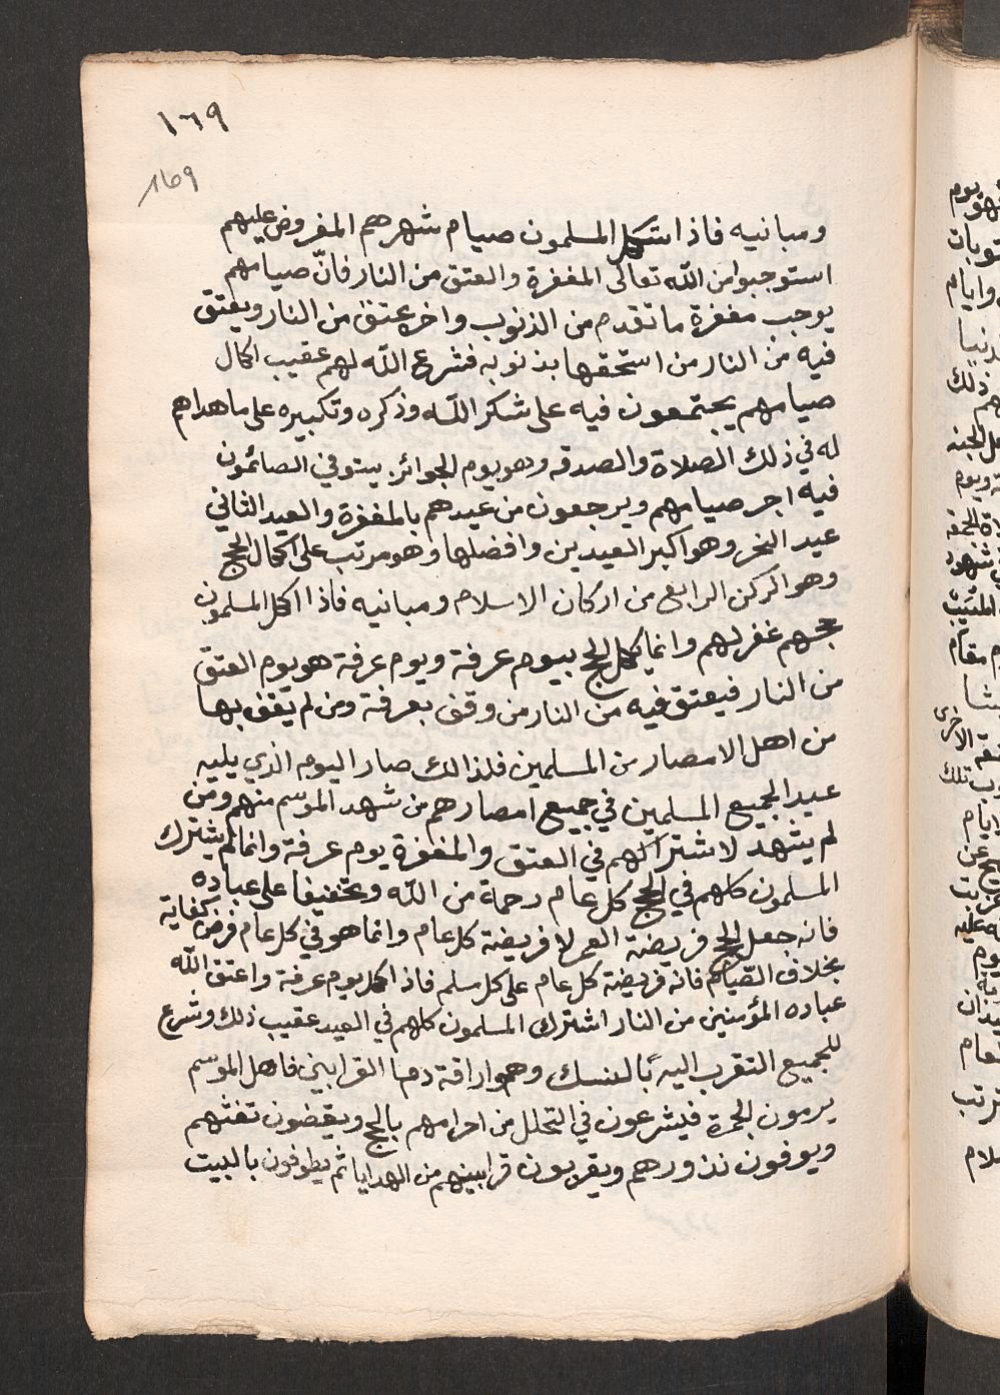 ١٦٩
169
ومبانيه فاذا استكمل المسلمون صيام شهرهم المفروض عليهم
استوجبوا من الله تعالى المغفرة والعتق من النار فانّ صيامهم
يوجب مغفرة ما تقدم من الذنوب واخره عتق من النار ويعتق
فيه من النار من استحقها بذنوبه فشرع الله لهم عقيب اكمال
صيامهم يجتمعون فيه على شكر الله وذكره وتكبيره على ما هداهم
له في ذلك الصلاة والصدقه وهو يوم الجوائز يستوفي الصائمون
فيه اجر صيامهم ويرجعون من عيدهم بالمغفرة والعيد الثاني
عيد النحر وهو اكبر العيدين وافضلها وهو مرتب على اكمال الحج
وهو الركن الرابع من اركان الاسلام ومبانيه فاذا اكمل المسلمون
حجهم غفر لهم وانما يكمل الحج بيوم عرفة ويوم عرفة هو يوم العتق
من النار فيعتق فيه من النار من وقف بعرفة ومن لم يقف بها
من اهل الامصار من المسلمين فلذالك صار اليوم الذي يليه
عيد الجميع المسلمين في جميع امصارهم من شهد الموسم منهم ومن
لم يشهد لاشتراكهم في العتق والمغفرة يوم عرفة وانما لم يشترك
المسلمون كلهم في الحج كل عام رحمة من الله وتخفيفا على عباده
فانه جعل الحج فريضة العمر لا فريضة كل عام وانما هو في كل عام فرض كفاية
بخلاف الصّيام فانه فريضة كل عام على كل مسلم فاذا اكمل يوم عرفة واعتق الله
عباده المؤمنين من النار اشترك المسلمون كلهم في العيد عقيب ذلك وشرع
للجميع التقرب اليه بالنسك وهو اراقة دما القرابين فاهل الموسم
يرمون الجمرة فيشرعون في التحلل من احرامهم بالحج ويقضون تفثهم
ويوفون نذورهم ويقربون قرابينهم من الهدايا ثم يطوفون بالبيت